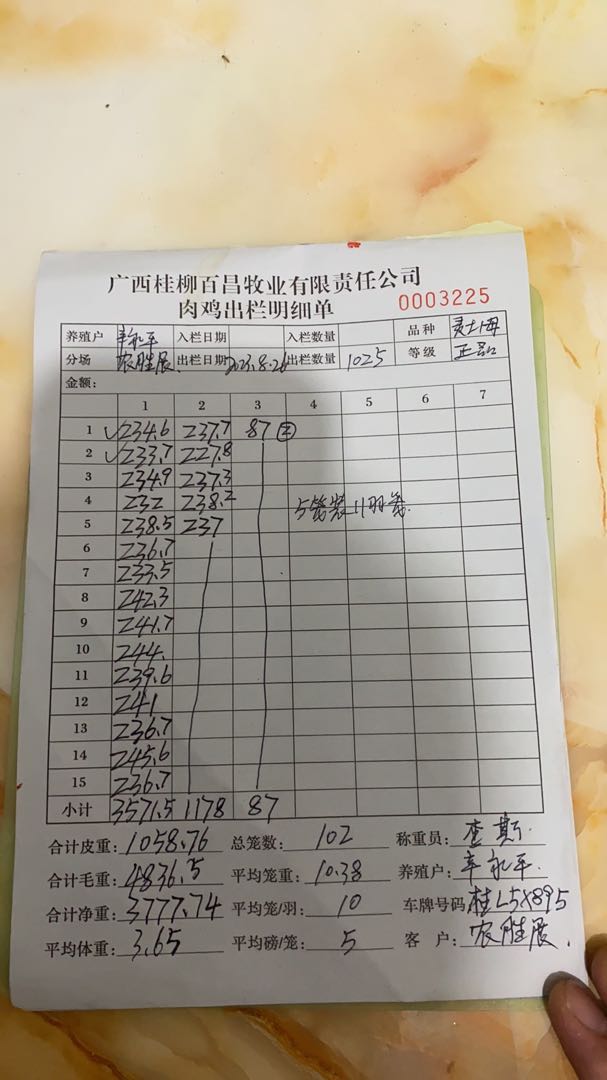 广西桂柳百昌牧业有限责任公司
肉鸡出栏明细单 0003225
养殖户 入栏日期 入栏数量 品种 灵士母
分场 农胜展 出栏日期 2023.8.26 出栏数量 1025 等级 正品
金额:
1 2 3 4 5 6 7
1 √234.6 237.7 87 ②
2 √233.7 227.8
3 234.9 237.3
4 232 238.2 5笼装11羽笼.
5 238.5 237
6 236.7
7 233.5
8 242.3
9 241.7
10 244.
11 239.6
12 241
13 236.7
14 245.6
15 236.7
小计 3571.5 1178 87
合计皮重: 1058.76 总笼数: 102 称重员:
合计毛重: 4836.5 平均笼重: 10.38 养殖户:
合计净重: 3777.74 平均笼/羽: 10 车牌号码 桂L5X895
平均体重: 3.65 平均磅/笼: 5 客户: 农胜展.